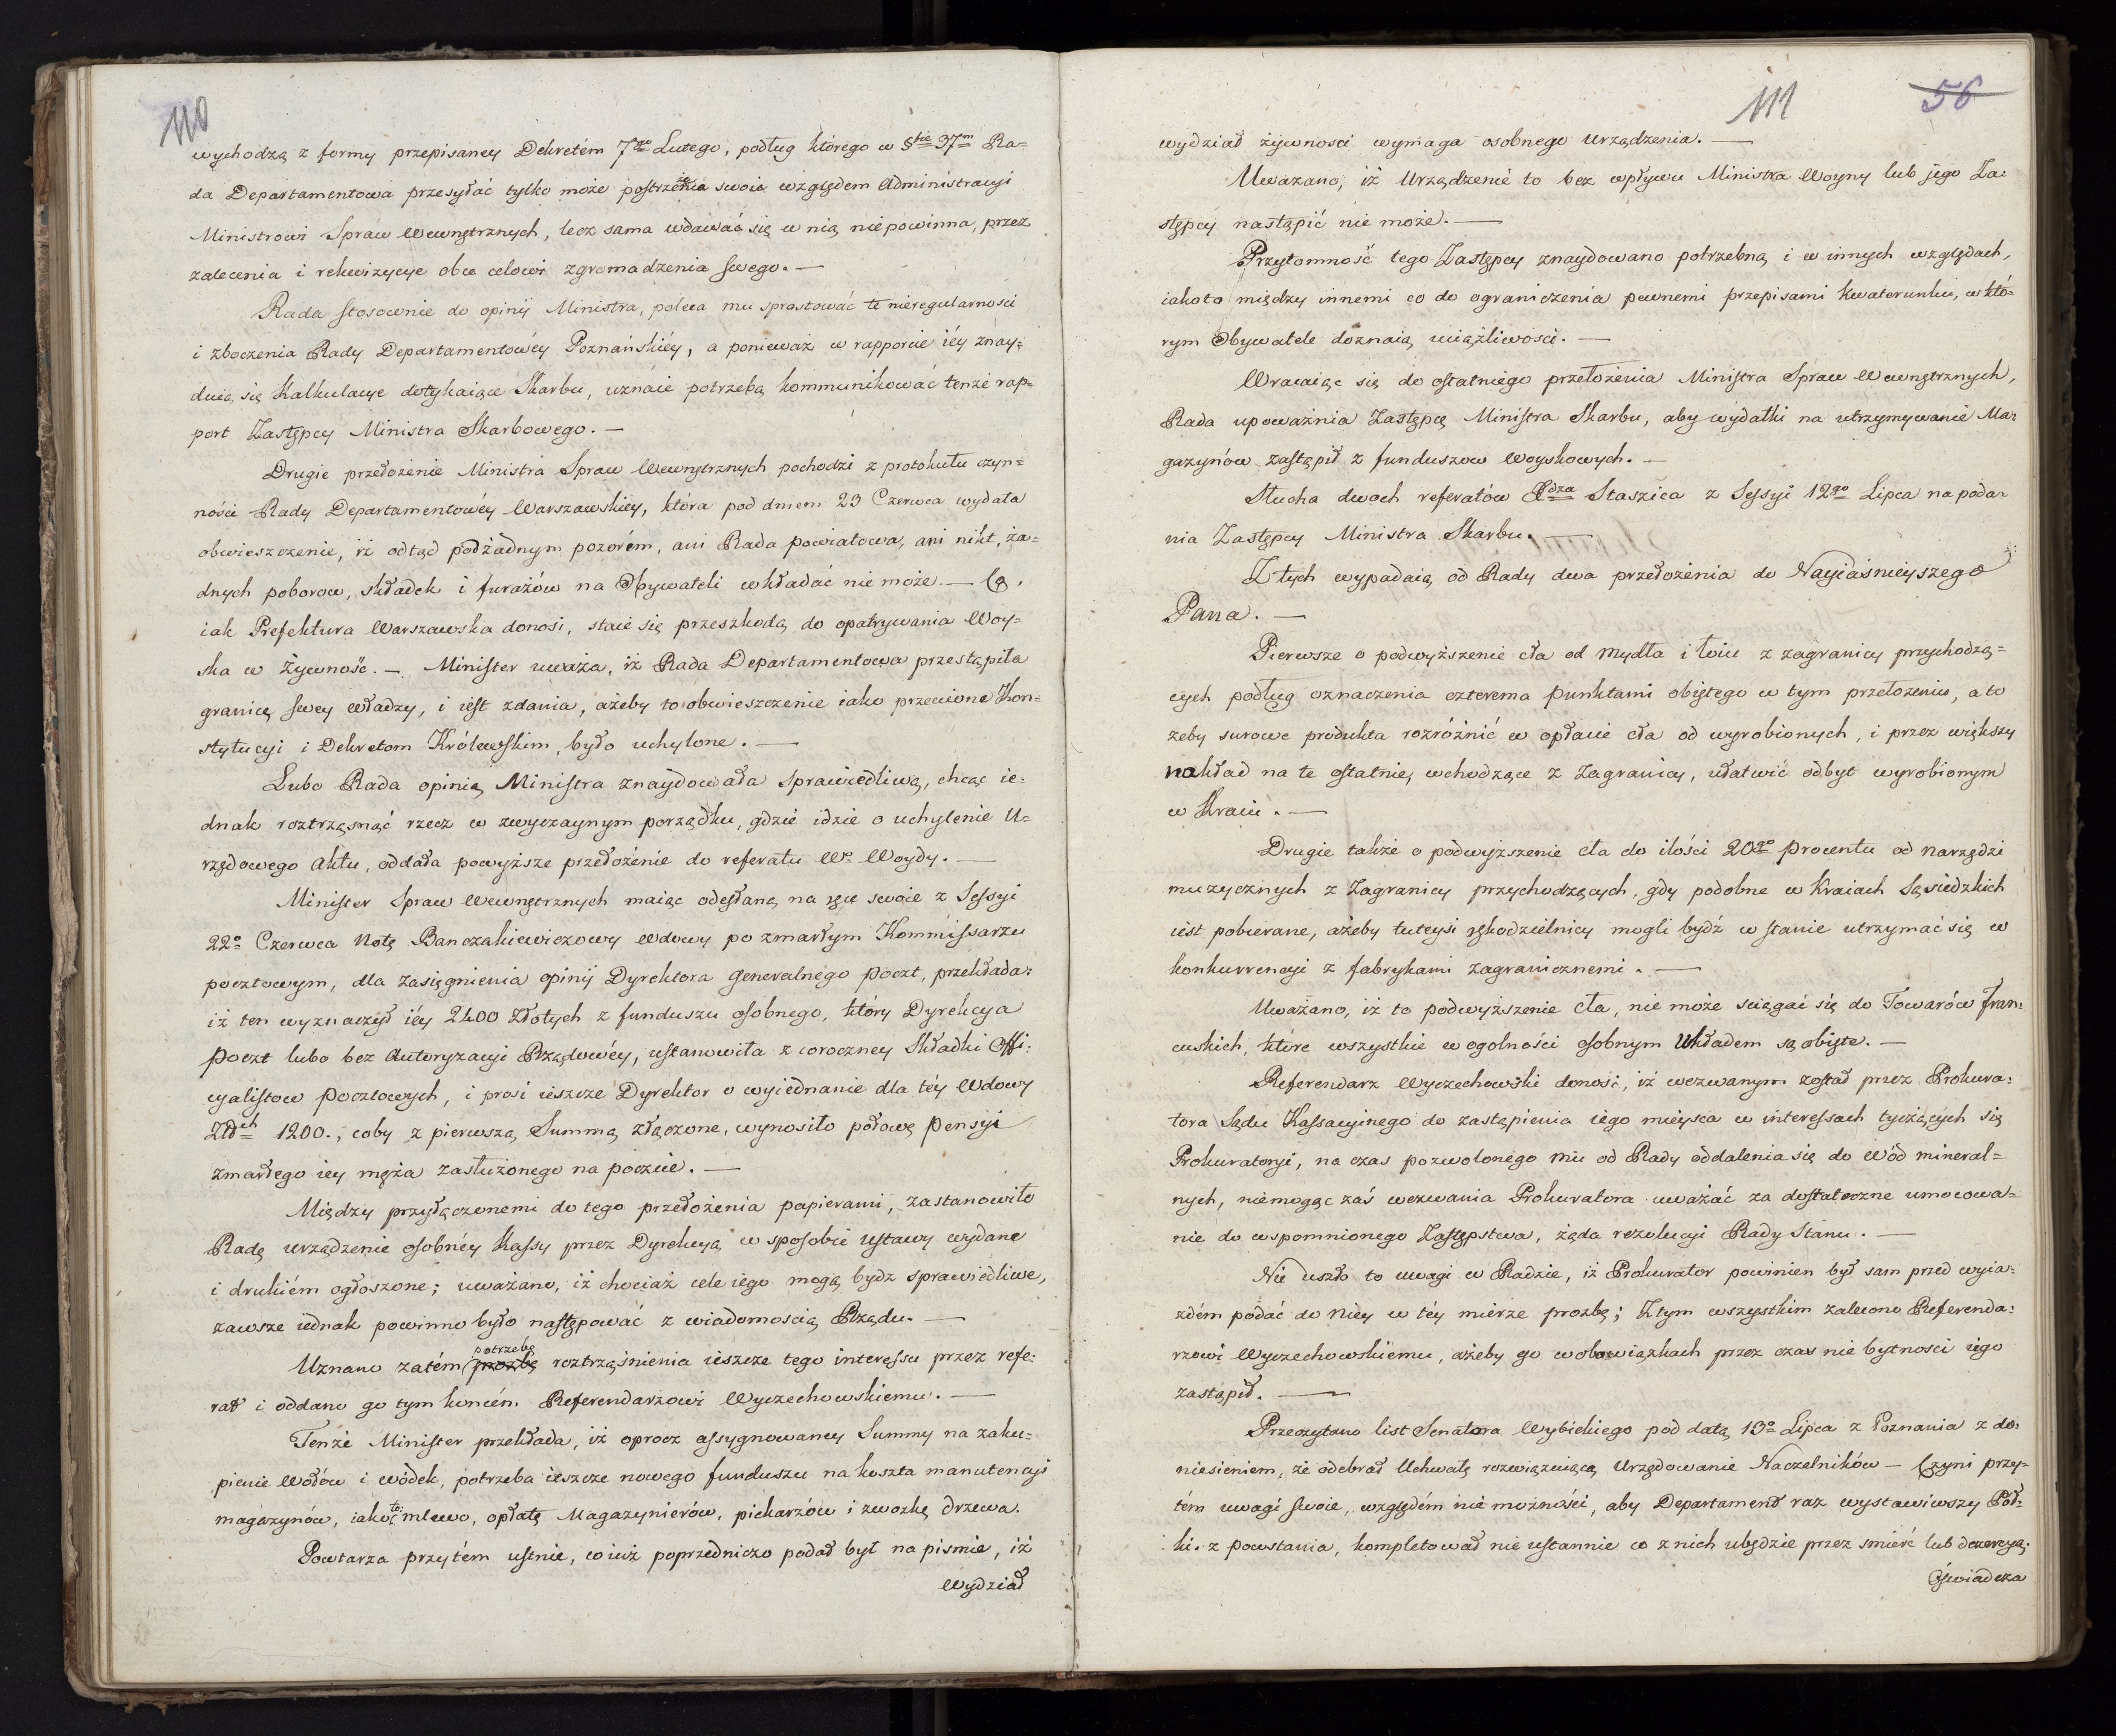 110
wychodzą z formy przepisaney Dekretém 7go Lutego, podług którego w §fie 37m Ra=
da Departamentowa przesyłać tylko może postrzeżenia swoie względem Administracyi
Ministrowi Spraw Wewnętrznych, lecz sama wdawać się w nią niepowinna, przez
zalecenia i rekwizycye obce celowi zgromadzenia swego. —
Rada stosownie do opinij Ministra, poleca mu sprostować te nieregularności
i zboczenia Rady Departamentowéy Poznańskiéy, a ponieważ w rapporcie iéy znay=
duią się Kalkulacye dotykaiące Skarbu, uznaie potrzebą kommunikować tenże rap=
port Zastępcy Ministra Skarbowego. —
Drugie przełożenie Ministra Spraw Wewnętrznych pochodzi z protokułu czyn=
ności Rady Departamentowéy Warszawskiey, która pod dniem 23 Czerwca wydała
obwieszczenie, iż odtąd podżadnym pozorém, ani Rada powiatowa, ani nikt, ża=
dnych poborow, składek i furażów na Obywateli wkładać nie może. — Co.
iak Prefektura Warszawska donosi, staie się przeszkodą do opatrywania Woy=
ska w Żywność. — Minister uważa, iż Rada Departamentowa przestąpiła
granicę swey władzy, i iest zdania, ażeby to obwieszczenie iako przeciwne Kon=
stytucyi i Dekretom Królewskim, było uchylone. —
Lubo Rada opinią Ministra znaydowała sprawiedliwą, chcąc ie=
dnak roztrząsnąć rzecz w zwyczaynym porządku, gdzie idzie o uchylenie U=
rzędowego Aktu, oddała powyższe przełożenie do referatu Wo Woydy. —
Minister Spraw Wewnętrznych maiąc odesłaną na ręce swoie z Sessyi
22o Czerwca Notę Banczakiewiczowy Wdowy po zmarłym Kommissarzu
pocztowym, dla zasięgnienia opinij Dyrektora Generalnego poczt, przekłada:
iż ten wyznaczył iéy 2400 złotych z funduszu osobnego, który Dyrekcya
poczt lubo bez Autoryzacyi Rządowéy, ustanowiła z coroczney składki Offi:
cyalistow pocztowych, i prosi ieszcze Dyrektor o wyiednanie dla téy Wdowy
Złtch 1200., coby z pierwszą Summą złączone, wynosiło połowę pensyi
zmarłego iey męża zasłużonego na poczcie. —
Między przyłączonemi do tego przełożenia papierami, zastanowiło
Radę urządzenie osobnéy Kassy przez Dyrekcyą w sposobie ustawy wydane
i drukiém ogłoszone; uważano, iż chociaż cele iego mogą bydz sprawiedliwe,
zawsze iednak powinno było następować z wiadomością Rządu. —
potrzebę
Uznano zatém prozbę roztrząśnienia ieszcze tego interessu przez refe:
rat i oddano go tym końcém Referendarzowi Wyczechowskiemu. —
Tenże Minister przekłada, iż oprocz assygnowaney Summy na zaku=
pienie wołów i wódek, potrzeba ieszcze nowego funduszu na koszta manutencyi
magazynów, iako to: mlewo, opłatę Magazynierów, piekarzów i zwozkę drzewa.
Powtarza przytém ustnie, co iuż poprzedniczo podał był na pismie, iż
Wydział
111
56
wydział żywnosci wymaga osobnego urządzenia. —
Uważano, iż Urządzenie to bez wpływu Ministra Woyny lub jego Za:
stępcy nastąpić nie może. —
Przytomność tego Zastępcy znaydowano potrzebną i w innych względach,
iakoto między innemi co do ograniczenia pewnemi przepisami Kwaterunku, w któ=
rym Obywatele doznaią uciążliwosci. —
Wracaiąc się do ostatniego przełożenia Ministra Spraw Wewnętrznych,
Rada upoważnia Zastępcę Ministra Skarbu, aby wydatki na utrzymywanie Ma:
gazynów zastąpił z funduszow Woyskowych. —
Słucha dwoch referatów Rdza Staszica z Sessyi 12go Lipca na poda=
nia Zastępcy Ministra Skarbu. —
Z tych wypadaią od Rady dwa przełożenia do Nayiaśnieyszego
Pana. —
Pierwsze o podwyższenie cła od mydła i łoiu z zagranicy przychodzą=
cych podług oznaczenia czterema punktami obiętego w tym przełożeniu, a to
żeby surowe produkta rozróżnić w opłacie cła od wyrobionych, i przez większy
nakład na te ostatnie, wchodzące z Zagranicy, ułatwić odbyt wyrobionym
w Kraiu. —
Drugie także o podwyższenie cła do ilości 20go procentu od narzędzi
muzycznych z Zagranicy przychodzących, gdy podobne w Kraiach Sąsiedzkich
iest pobierane, ażeby tuteysi rękodzielnicy mogli bydź w stanie utrzymać się w
konkurrencyi z fabrykami zagranicznemi. —
Uważano, iż to podwyższenie cła, nie może sciągać się do Towarów fran=
cuskich, które wszystkie w ogolności osobnym układem są obięte. —
Referendarz Wyczechowski donosi, iż wezwanym został przez Prokura:
tora Sądu Kassacyinego do zastąpienia iego mieysca w interessach tyczących się
Prokuratoryi, na czas pozwolonego mu od Rady oddalenia się do wód mineral=
nych, niemogąc zaś wezwania Prokuratora uważać za dostateczne umocowa=
nie do wspomnionego Zastępstwa, żąda rezolucyi Rady Stanu. —
Nie uszło to uwagi w Radzie, iż Prokurator powinien był sam przed wyia=
zdém podać do niey w téy mierze prozbę; Z tym wszystkim zalecono Referenda:
rzowi Wyczechowskiemu, ażeby go w obowiązkach przez czas nie bytnosci iego
zastąpił. —
Przeczytano list Senatora Wybickiego pod datą 13o Lipca z Poznania z do:
niesieniem, że odebrał Uchwałę rozwiązuiącą Urzędowanie Naczelników — Czyni przy=
tém uwagi swoie, względém nie możności, aby Departament raz wystawiwszy Pół=
ki z powstania, kompletował nie ustannie co z nich ubędzie przez smierć lub dezercyą.
Oswiadcza